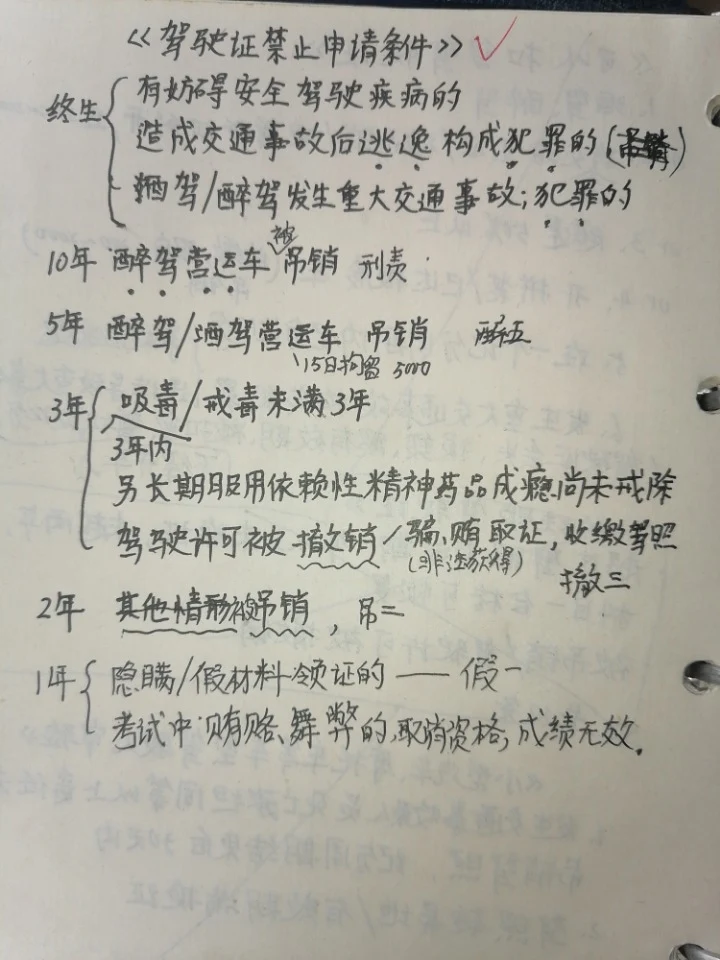 《驾驶证禁止申请条件》✓
终生
有妨碍安全驾驶疾病的
造成交通事故后逃逸构成犯罪的(吊销)
酒驾/醉驾发生重大交通事故;犯罪的
10年 醉驾营运车被吊销 刑责
5年 醉驾/酒驾营运车 吊销 醉五
15日拘留 5000
3年
吸毒/戒毒未满3年
3年内
另长期服用依赖性精神药品成瘾尚未戒除
驾驶许可被撤销/骗、贿取证,收缴驾照
(非法获得)
撤三
2年 其他情形被吊销,吊二
1年
隐瞒/假材料领证的——假一
考试中贿赂、舞弊的,取消资格,成绩无效.